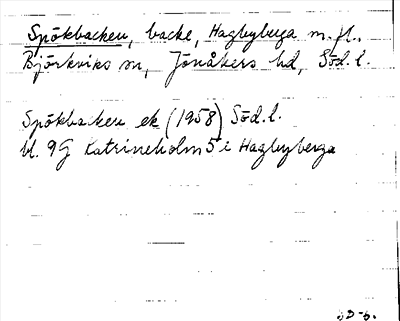 Spökbacken, backe, Hagbyberga m. fl.,
Björkviks sn, Jönåkers hd, Söd. l.
Spökbacken ek (1958) Söd. l.
Bl. 9G Katrineholm 5 i Hagbyberga